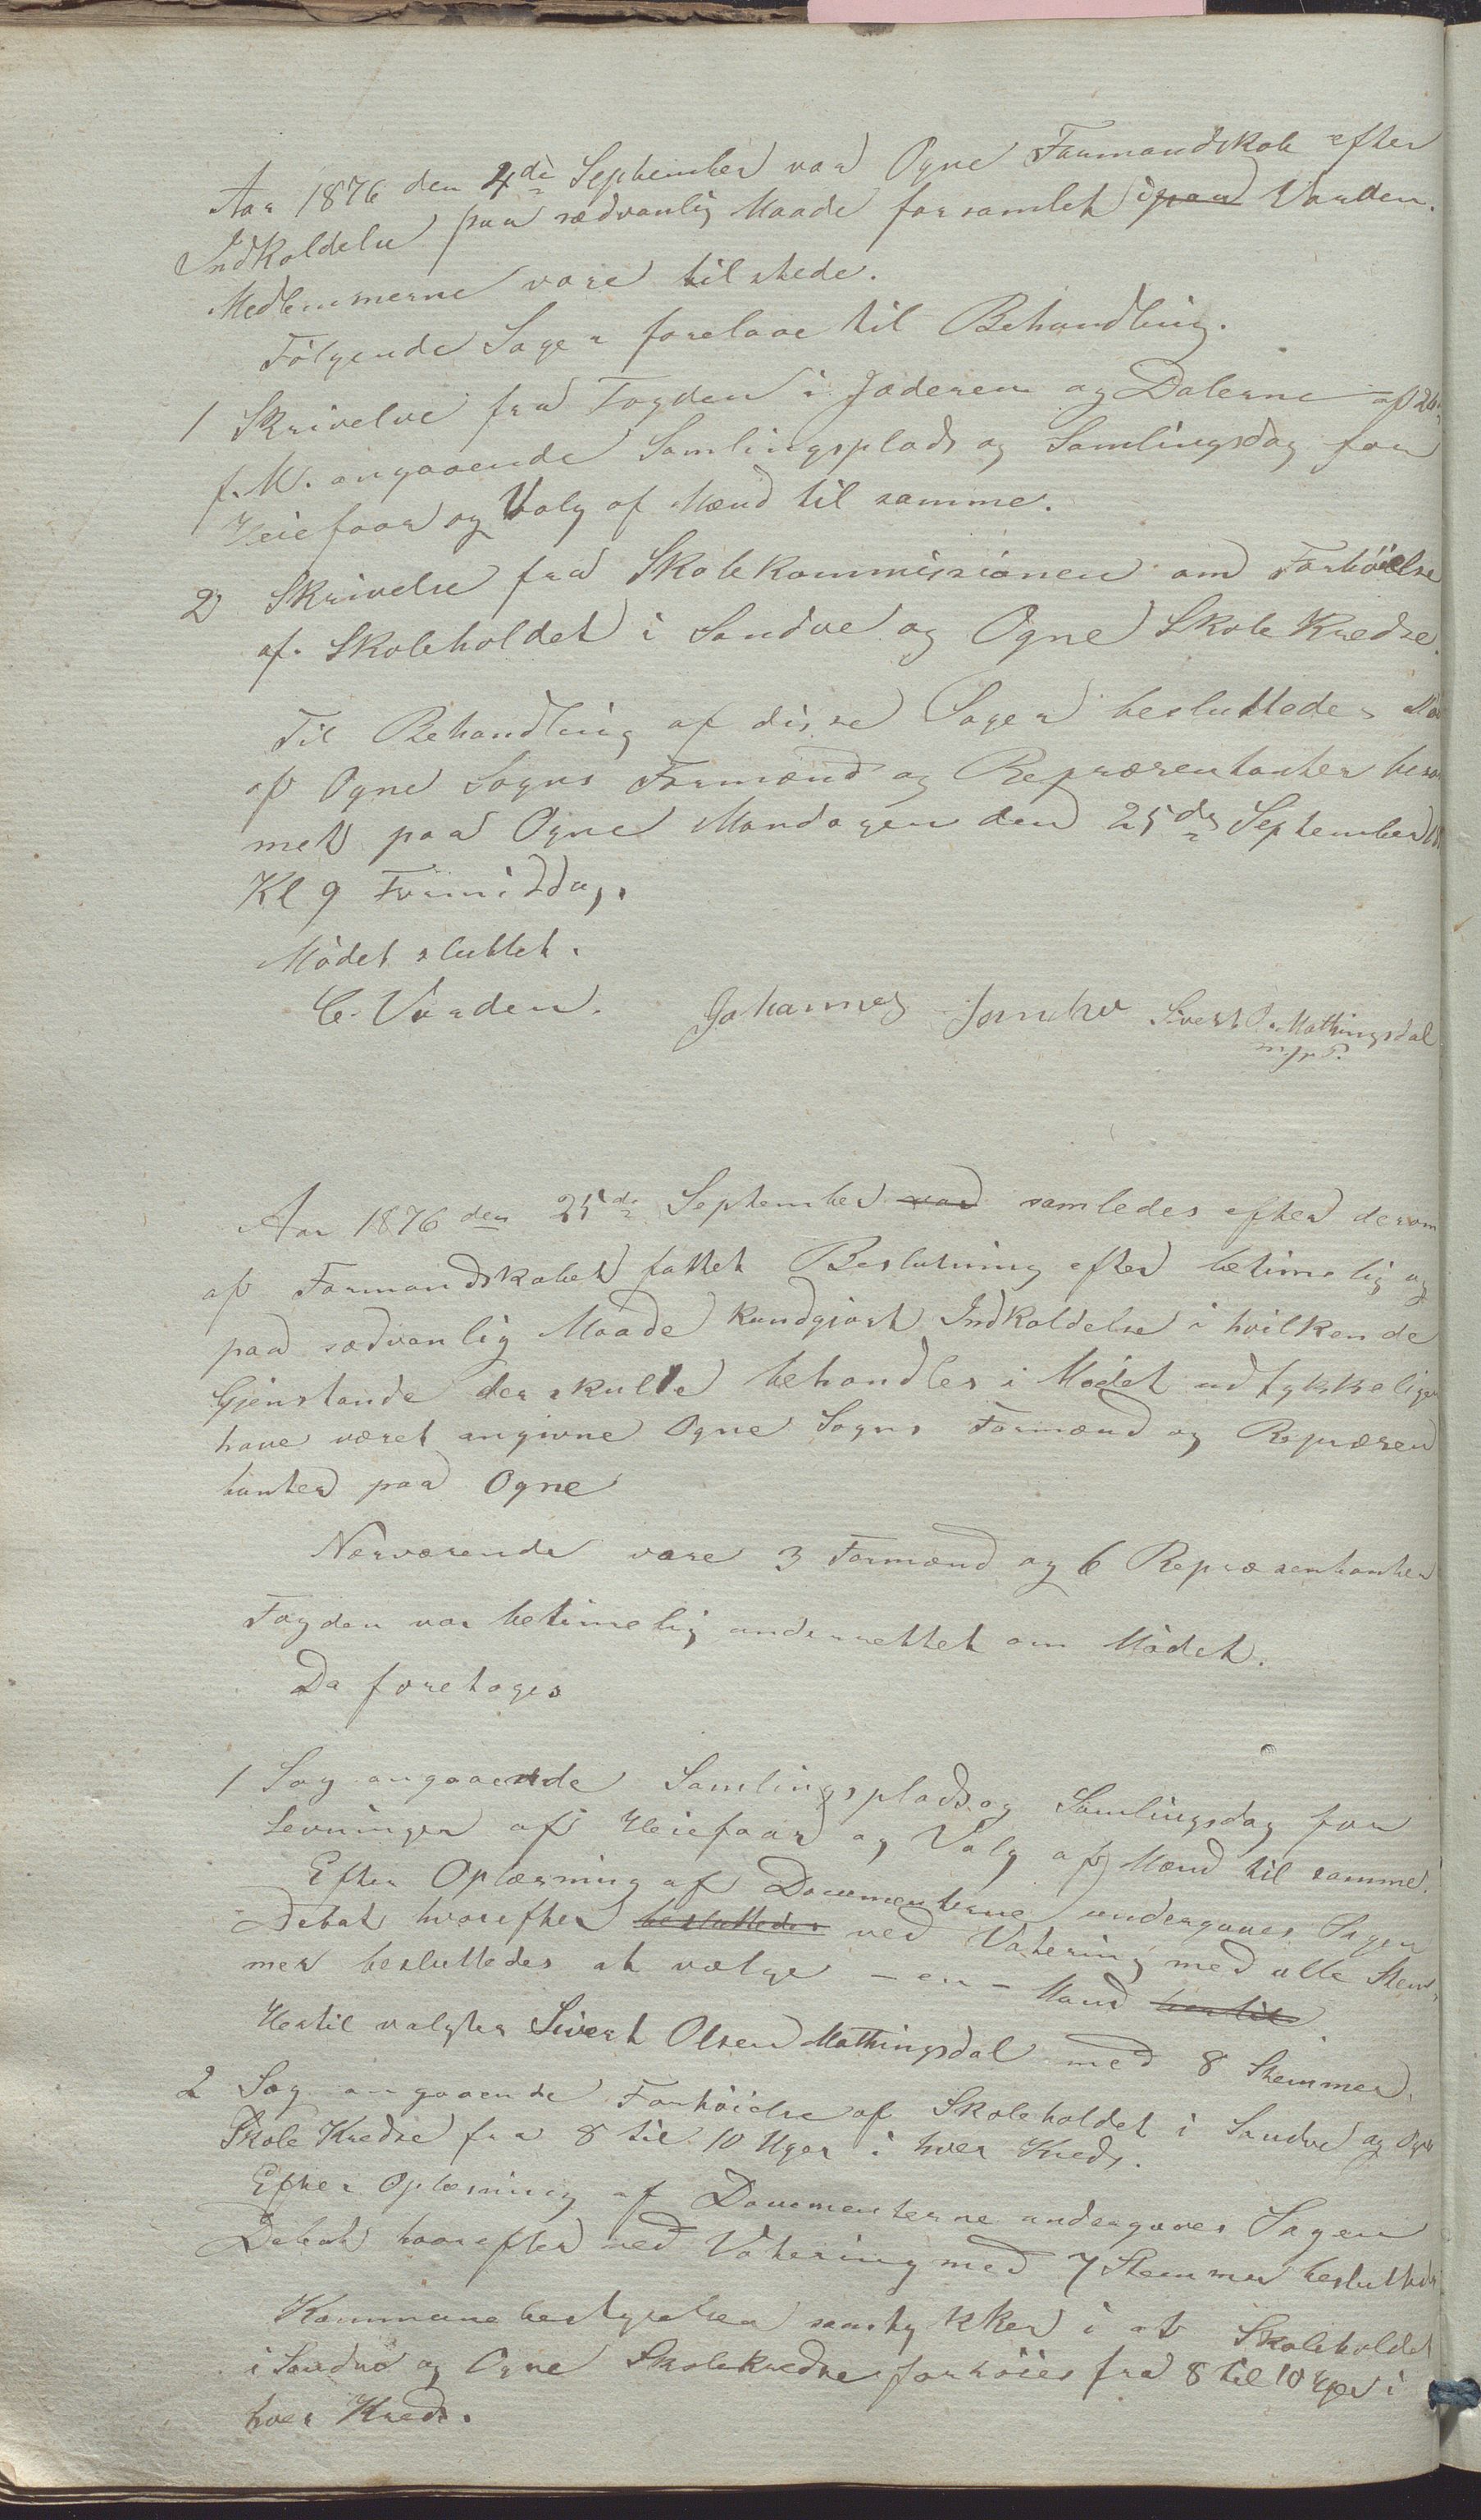 Aar 1876 den 4de September var Ogne Formandskab efter
Indkaldelse paa sædvanlig Maade forsamlet i paa Varden.
Medlemmerne vare tilstede.
Følgende Sager forelaae til Behandling.
1 Skrivelse fra Fogden i Jæderen og Dalerne af 26
f. M. angaaende Samlingsplads og Samlingsdag for
Heiefaar og Valg af Mænd til samme.
2) Skrivelse fra Skolekommissionen om Forhöielse
af Skoleholdet i Sandve og Ogne Skole Kredse.
Til Behandling af disse Sager besluttedes
af Ogne Sogns Formænd og Repræsentanter
met paa Ogne Mandagen den 25de September
Kl 9 Formiddag.
Mödet sluttet.
C. Varden. Johannes Sivert O. Mathingsdal
m/p P.
Aar 1876 den 25de September var samledes efter derom
af Formandskabet fattet Beslutning efter betimelig og
paa sædvanlig Maade kundgjort Indkaldelse i hvilken de
Gjenstande der skulle behandles i Mödet udtykkeligen
have været angivne Ogne Sogns Formænd og Repræsen
tanter paa Ogne
Nærværende vare 3 Formænd og 6 Repræsentanter
Fogden var betimelig underrettet om Mödet.
Da foretoges
1 Sag angaaende Samlingsplads og Samlingsdag for
Levninger af Heiefaar og Valg af Mænd til samme.
Efter Oplæsning af Documenterne undergaves Sagen
Debat hvorefter besluttedes ved Votering med alle Stem-
mer besluttedes at vælge - en - Mand hertil.
Hertil valgtes Sivert Olsen Mathingsdal med 8 Stemmer.
2 Sag angaaende Forhöielse af Skoleholdet i Sandve og Ogne
Skole Kredse fra 8 til 10 Uger i hver Kreds.
Efter Oplæsning af Documenterne undergaves Sagen
Debat hvorefter ved Votering med 7 Stemmer besluttedes
Kommunebestyrelsen samtykker i at Skoleholdet
i Sandve og Ogne Skolekredse forhöies fra 8 til 10 Uger i
hver Kreds.